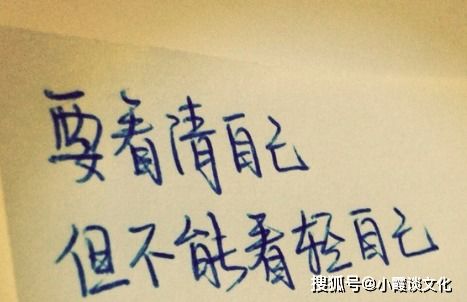 要看清自己
但不能看轻自己
搜狐号@小霞谈文化